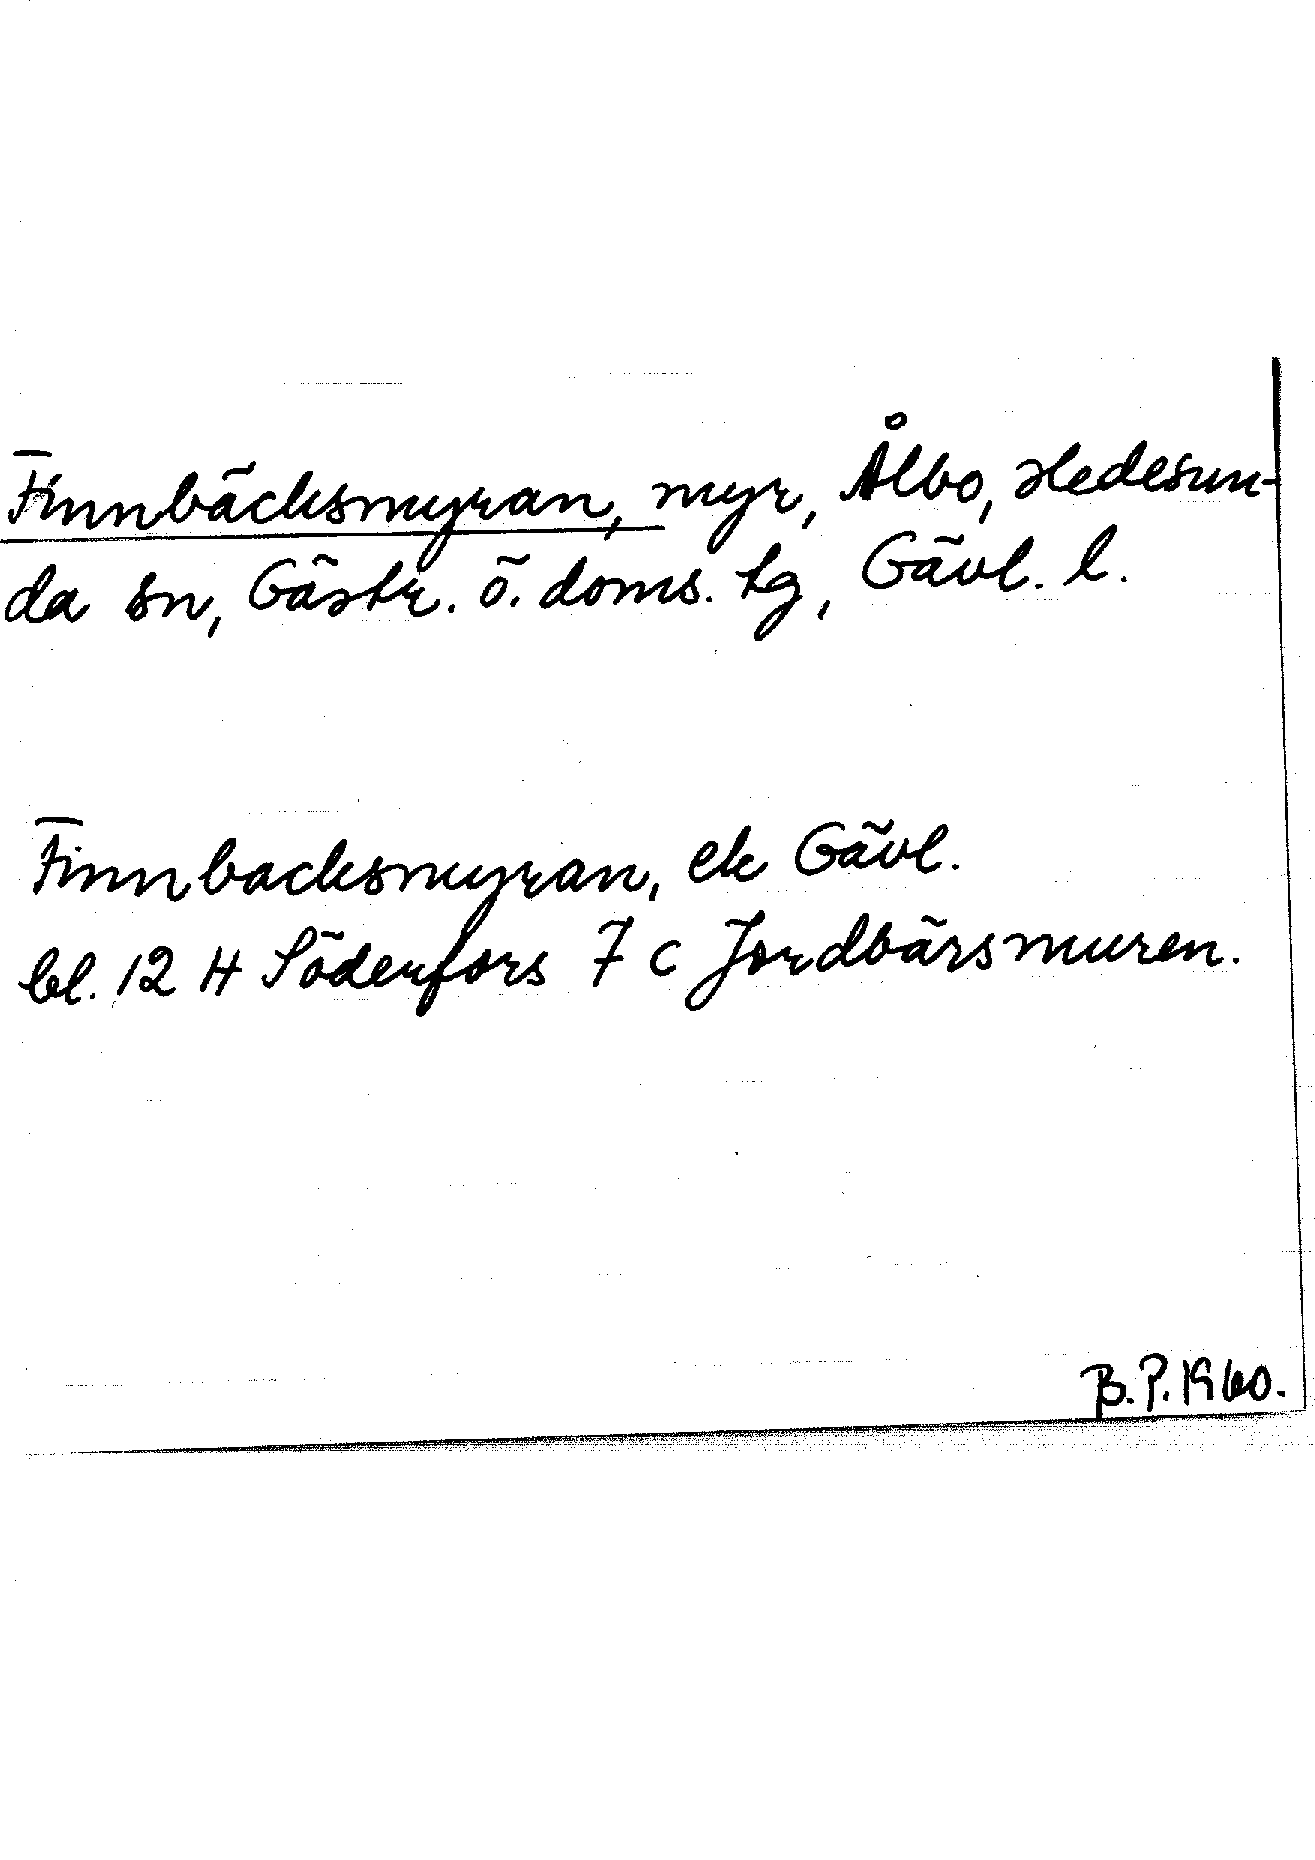 Finnbäcksmyran, myr, Ålbo, Hedesun-
da sn, Gästr. ö. doms. tg, Gävl. l.
Finnbacksmyran, ek Gävl.
bl. 12 H Söderfors 7 c Jordbärsmuren.
B.P. 1960.